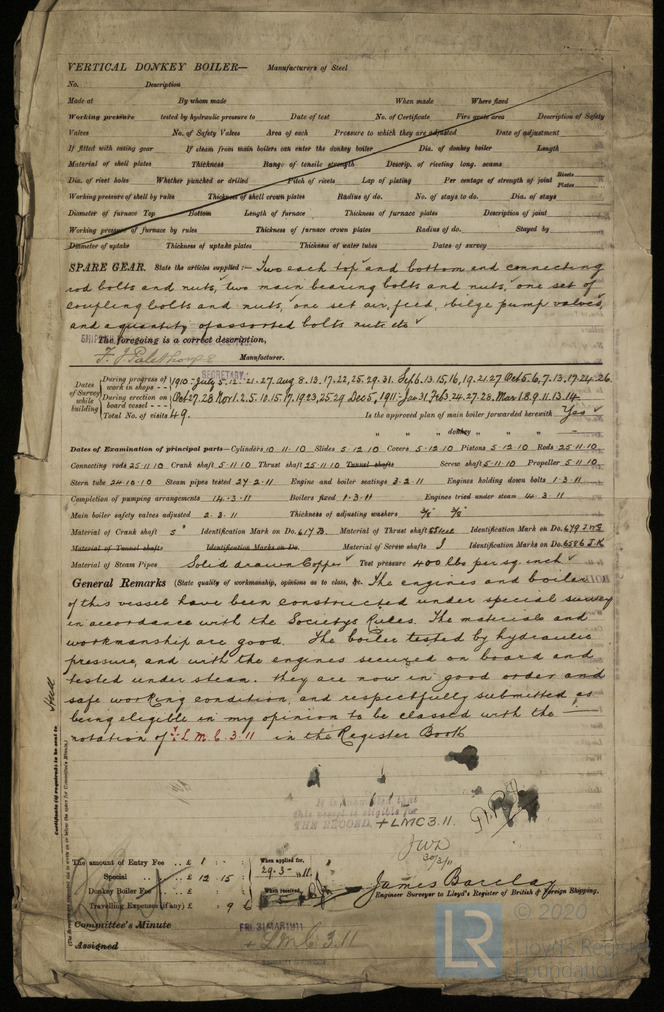 VERTICAL DONKEY BOILER— Manufacturers of Steel
No. Description
Made at By whom made When made Where fixed
Working pressure tested by hydraulic pressure to Date of test No. of Certificate Fire grate area Description of Safety
Valves No. of Safety Valves Area of each Pressure to which they are adjusted Date of adjustment
If fitted with easing gear If steam from main boilers can enter the donkey boiler Dia. of donkey boiler Length
Material of shell plates Thickness Range of tensile strength Descrip. of riveting long. seams
Dia. of rivet holes Whether punched or drilled Pitch of rivets Lap of plating Per centage of strength of joint Rivets Plates
Working pressure of shell by rules Thickness of shell crown plates Radius of do. No. of stays to do. Dia. of stays
Diameter of furnace Top Bottom Length of furnace Thickness of furnace plates Description of joint
Working pressure of furnace by rules Thickness of furnace crown plates Radius of do. Stayed by
Diameter of uptake Thickness of uptake plates Thickness of water tubes Dates of survey
SPARE GEAR. State the articles supplied:— Two each top and bottom end connecting
rod bolts and nuts, two main bearing bolts and nuts, one set of
coupling bolts and nuts, one set air, feed, bilge pump valves
and a quantity of assorted bolts nuts etc
The foregoing is a correct description,
F. J. Palethorpe Manufacturer.
SECRETARY
Dates of Survey while building
During progress of work in shops - - 1910:- July 5.12.21.27. Aug 8.13.17.22,25.29.31. Sep 6.13.15,16,19.21.27 Oct 5.6,7.13.17.24.26
During erection on board vessel - - - Oct 27.28 Nov 1.2.5.10.15.17.19 23,25.29 Dec 5, 1911:- Jan 31. Feb 3.24.27.28. Mar 1.8.9.11.13.14
Total No. of visits 49. Is the approved plan of main boiler forwarded herewith Yes
" " " donkey " " "
Dates of Examination of principal parts—Cylinders 10.11.10 Slides 5.12.10 Covers 5.12.10 Pistons 5.12.10 Rods 25.11.10
Connecting rods 25.11.10 Crank shaft 5.11.10 Thrust shaft 25.11.10 Tunnel shafts Screw shaft 5.11.10 Propeller 5.11.10
Stern tube 24.10.10 Steam pipes tested 27.2.11 Engine and boiler seatings 3.2.11 Engines holding down bolts 1.3.11
Completion of pumping arrangements 14.3.11 Boilers fixed 1.3.11 Engines tried under steam 14.3.11
Main boiler safety valves adjusted 2.3.11 Thickness of adjusting washers
Material of Crank shaft S Identification Mark on Do. 617B Material of Thrust shaft Steel Identification Mark on Do.
Material of Tunnel shafts Identification Marks on Do. Material of Screw shafts Identification Marks on Do.
Material of Steam Pipes Solid drawn Copper Test pressure 400 lbs per sq. inch
General Remarks (State quality of workmanship, opinions as to class, &c. The engines and boiler
of this vessel have been constructed under special survey
in accordance with the Societys Rules. The materials and
workmanship are good. The boiler tested by hydraulic
pressure, and with the engines secured on board and
tested under steam. they are now in good order and
safe working condition, and respectfully submitted as
being eligible in my opinion to be classed with the —
notation of + LMC 3.11 in the Register Book
It is submitted that
this vessel is eligible for
THE RECORD. + LMC 3.11.
JWD
30/3/11
Certificate (if required) to be sent to
The amount of Entry Fee .. £ 1 : :
Special .. £ 12 : 15 :
Donkey Boiler Fee .. £ : :
Travelling Expenses (if any) £ : 9 6
When applied for,
29.3.11.
When received,
James Barclay
Engineer Surveyor to Lloyd's Register of British & Foreign Shipping.
Committee's Minute FRI. 31 MAR 1911
Assigned + LMC 3.11
LR
© 2020
Lloyd's Register
Foundation